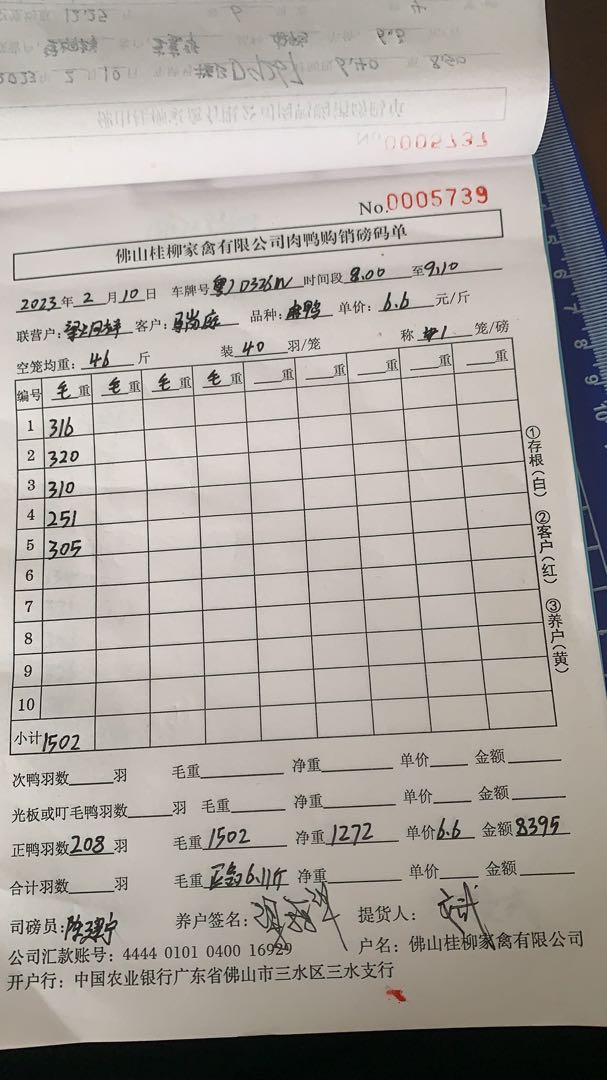 No.0005739
佛山桂柳家禽有限公司肉鸭购销磅码单
2023年 2 月 10 日 车牌号 粤J D326W 时间段 8.00 至 9.10
联营户: 客户: 品种: 鸭 单价: 6.6 元/斤
空笼均重: 46 斤 装 40 羽/笼 称 1 笼/磅
编号 毛重 毛重 毛重 毛重 重 重 重 重 重
1 316
2 320
3 310
4 251
5 305
6
7
8
9
10
小计 1502
①存根(白) ②客户(红) ③养户(黄)
次鸭羽数 羽 毛重 净重 单价 金额
光板或叮毛鸭羽数 羽 毛重 净重 单价 金额
正鸭羽数 208 羽 毛重 1502 净重 1272 单价 6.6 金额 8395
合计羽数 羽 毛重 6.11斤 净重 单价 金额
司磅员: 养户签名: 提货人:
公司汇款账号: 4444 0101 0400 16929 户名: 佛山桂柳家禽有限公司
开户行: 中国农业银行广东省佛山市三水区三水支行